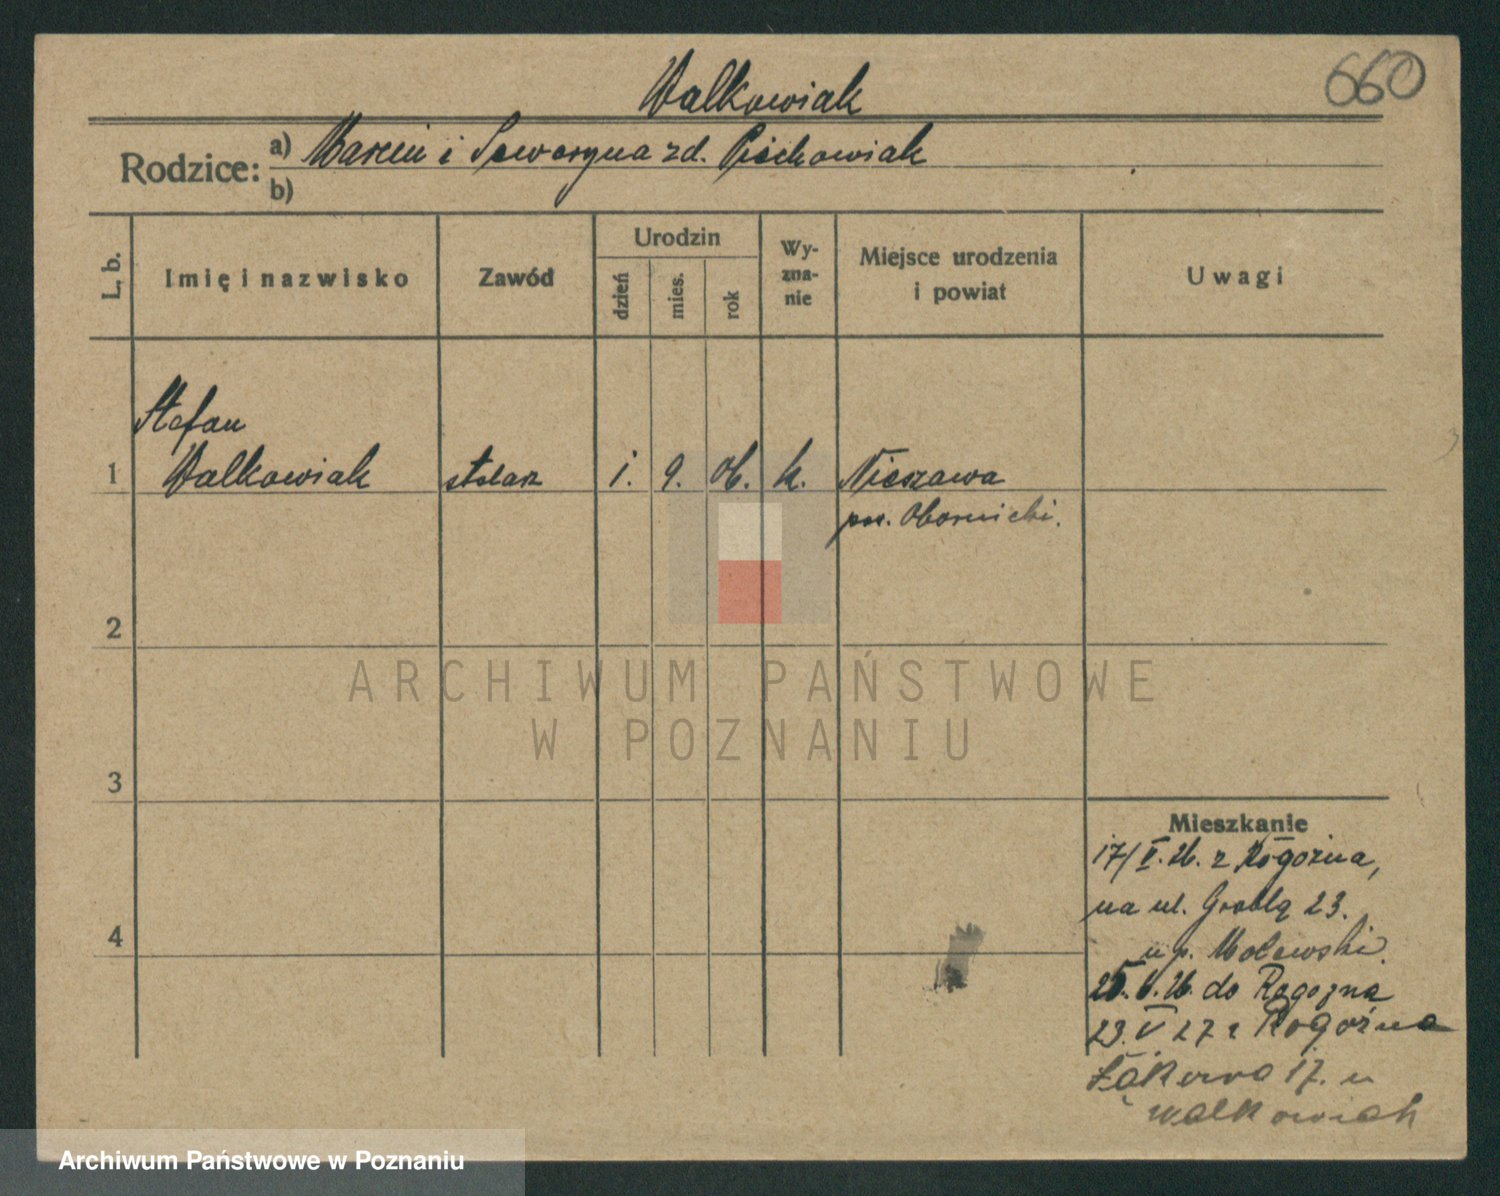 Walkowiak
660
Rodzice: a) Marcin i Seweryna zd. Piechowiak
b)
L. b.
Imię i nazwisko
Zawód
Urodzin
dzień
mies.
rok
Wy-
zna-
nie
Miejsce urodzenia
i powiat
Uwagi
Stefan
1 Walkowiak stolarz 1. 9. 06. k. Nieszawa
pow. Obornicki.
2
3
4
Mieszkanie
17/V. 26. z Rogoźna,
na ul. Groblą 23.
u p. Molewski.
26. do Rogozna
23. V 27 z Rogoźna
Łąkowa 17. u
Walkowiak
ARCHIWUM PAŃSTWOWE
W POZNANIU
Archiwum Państwowe w Poznaniu